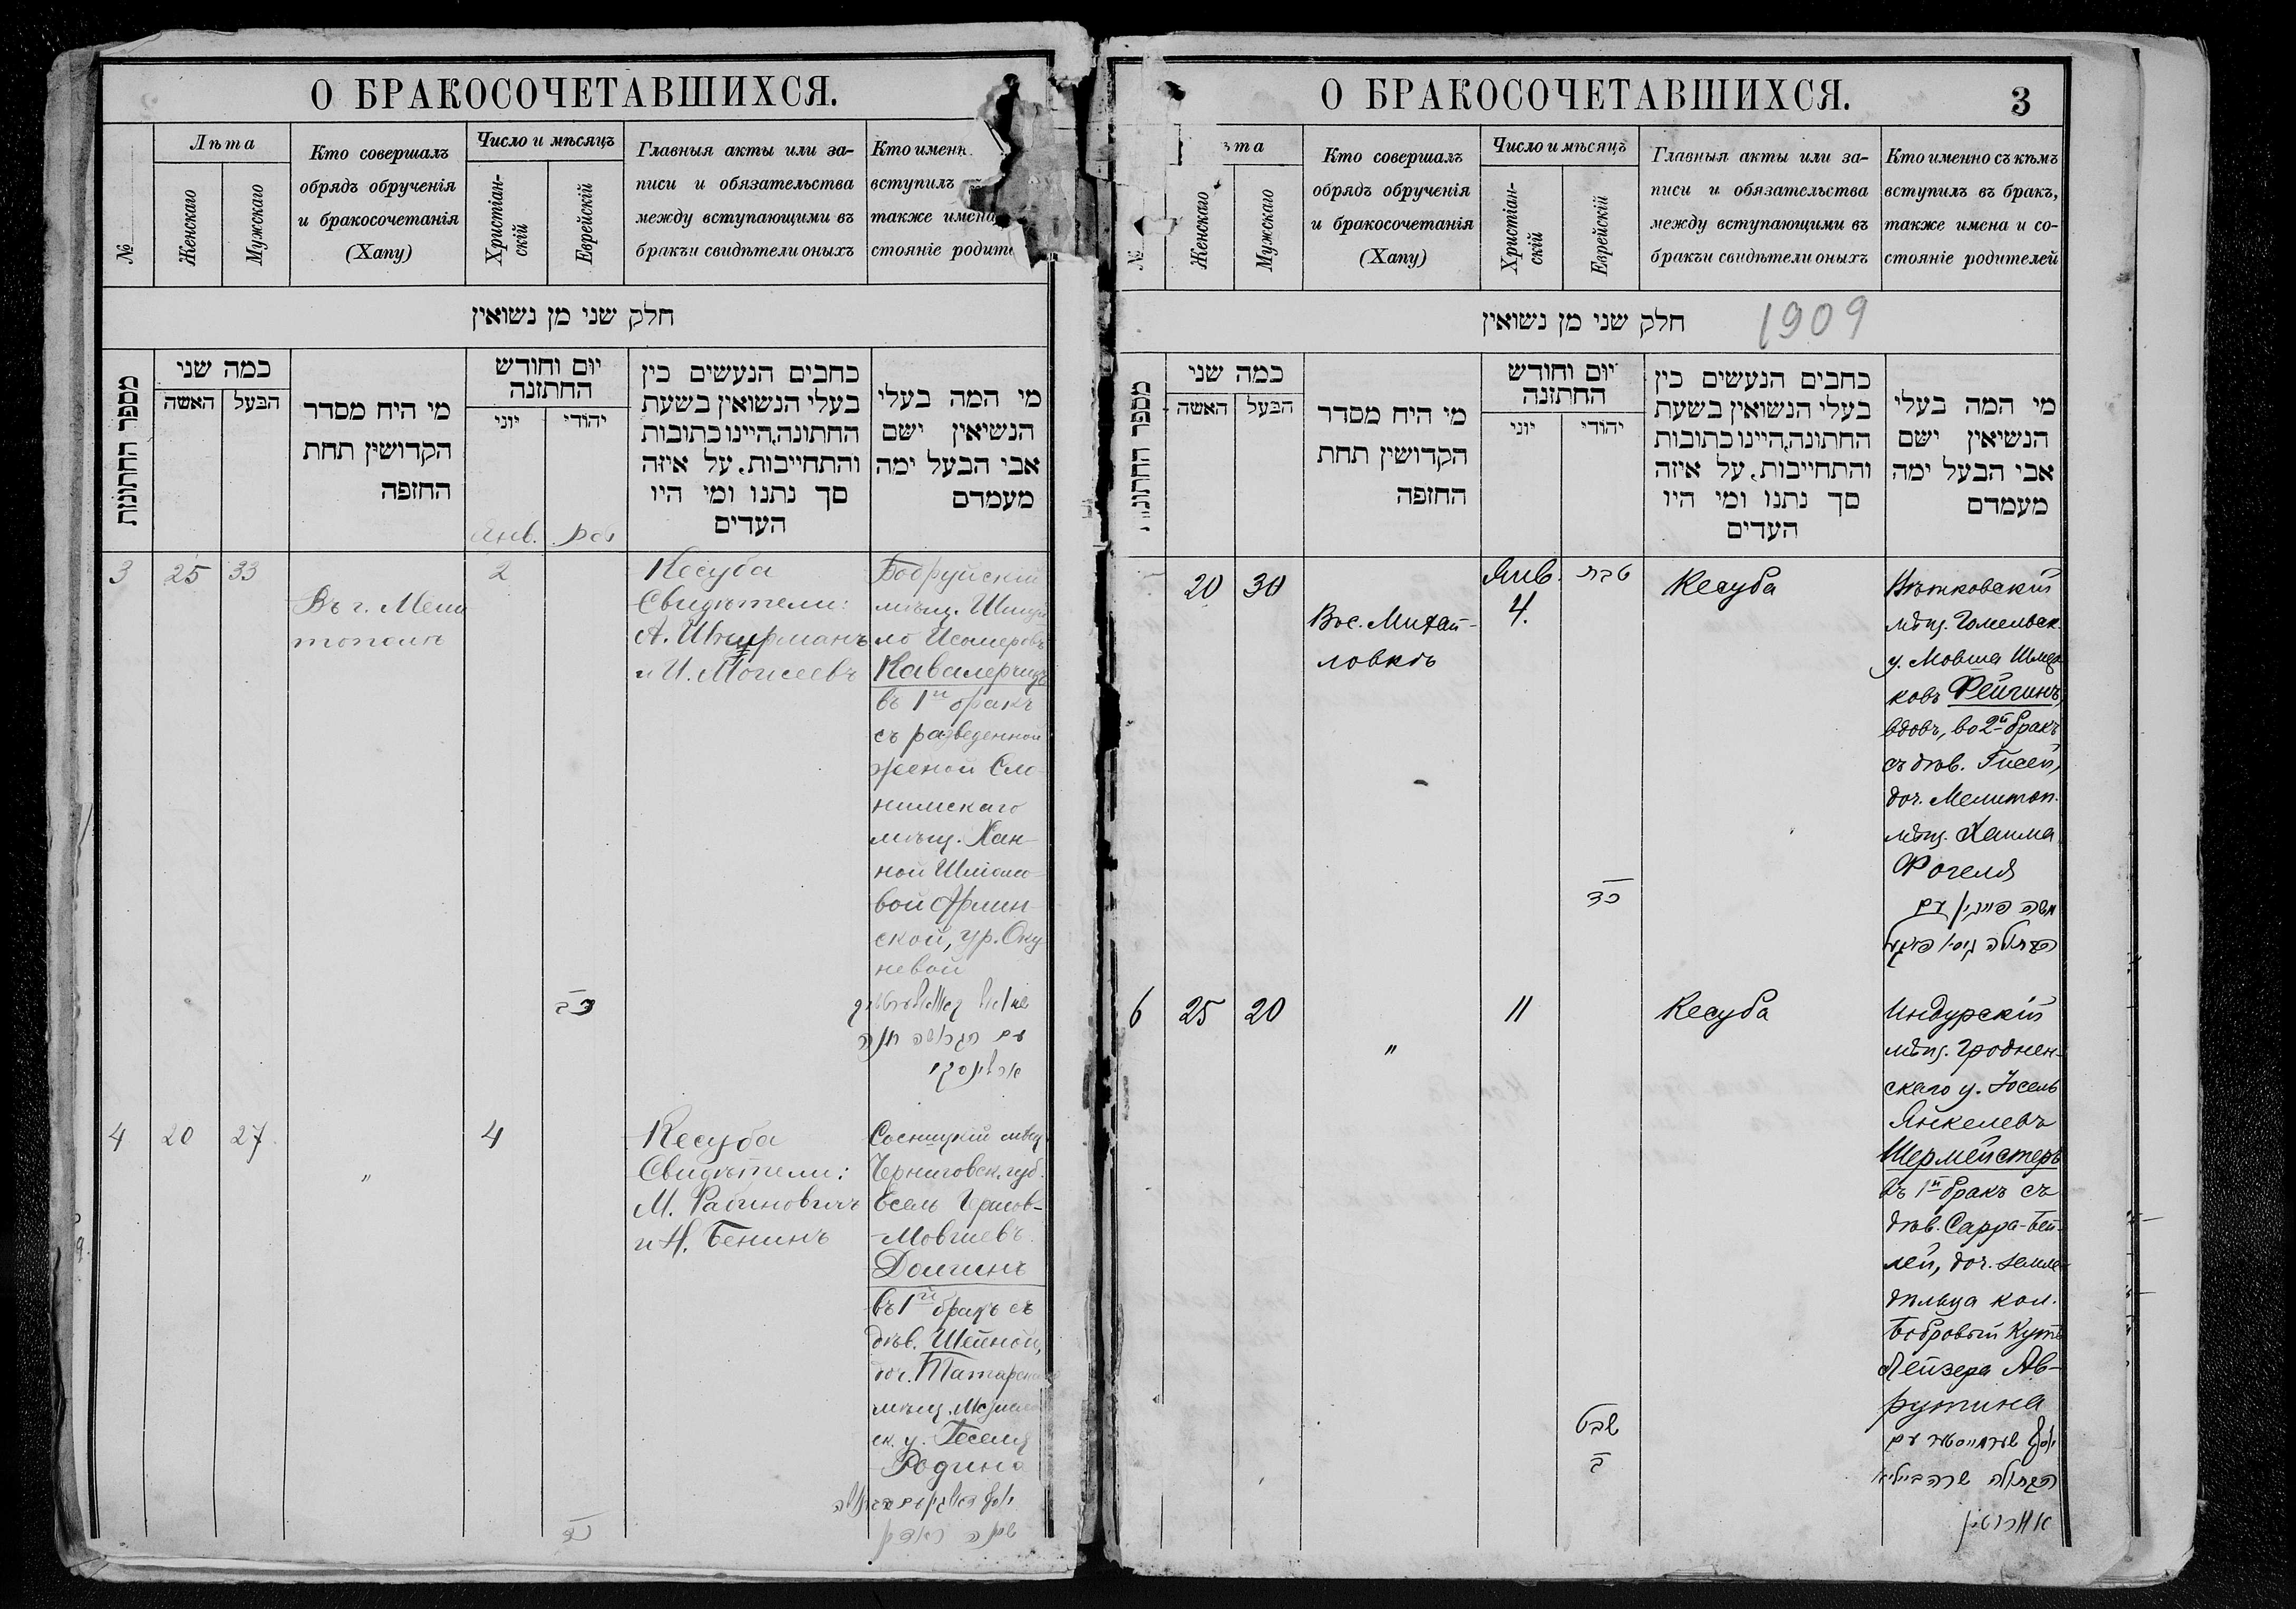 О БРАКОСОЧЕТАВШИХСЯ.
№
Лѣта
Женскаго
Мужскаго
Кто совершалъ
обрядъ обрученія
и бракосочетанія
(Хапу)
Число и мѣсяцъ
Христіан-
скій
Еврейскій
Главныя акты или за-
писи и обязательства
между вступающими въ
бракъи свидѣтели оныхъ
Кто именн
вступилъ
также имена
стояніе родите
חלק שני מן נשואין
מספר החתונות
כמה שני
האשה
הבעל
מי היח מסדר
הקדושין תחת
החופה
יום וחודש
החתונה
יוני
יהודי
כחבים הנעשים כין
בעלי הנשואין בשעת
החתונה,היינו כתובות
והתחייבות, על איזה
סך נתנו ומי היו
העדים
מי המה בעלי
הנשיאין ישם
אבי הבעל ימה
מעמדם
Янв.
3
25
33
Въ г. Мели
тополѣ
2
Кесуба
Свидѣтели:
А. Штурманъ
и И. Моисеевъ
Бобруйскій
мѣщ.
Кавалерчикъ
въ 1й бракъ
съ разведенной
женой Сло
нимскаго
мѣщ. Хан-
ной
вой
ской, ур. Оку
невой
כב
עם הגרושה חנה
4
20
27
"
4
Кесуба
Свидѣтели:
М. Рабиновичъ
и Н. Бенинъ
Сосницкій мѣщ.
Черниговск. губ.
Есель
Мовшевъ
Долгинъ
въ 1й бракъ съ
дѣв. Шейной,
доч. Татарска
мѣщ.
ск. у. Геселя
Родина
כד
О БРАКОСОЧЕТАВШИХСЯ.
3
№
ѣта
Женскаго
Мужскаго
Кто совершалъ
обрядъ обрученія
и бракосочетанія
(Хапу)
Число и мѣсяцъ
Христіан-
скій
Еврейскій
Главныя акты или за-
писи и обязательства
между вступающими въ
бракъи свидѣтели оныхъ
Кто именно съ кѣмъ
вступилъ въ бракъ,
также имена и со-
стояніе родителей
חלק שני מן נשואין
1909
מספר החתונות
כמה שני
האשה
הבעל
מי היח מסדר
הקדושין תחת
החופה
יום וחודש
החתונה
יוני
יהודי
כחבים הנעשים כין
בעלי הנשואין בשעת
החתונה,היינו כתובות
והתחייבות, על איזה
סך נתנו ומי היו
העדים
מי המה בעלי
הנשיאין ישם
אבי הבעל ימה
מעמדם
20
30
Въ с. Михай-
ловкѣ
Янв.
4.
טבת
כד
Кесуба
Вѣтковскій
мѣщ. Гомельск.
у. Мовша Шмер
ковъ Фейгинъ,
вдовъ, во 2й бракъ
съ дѣв. Гисей,
доч. Мелитоп.
мѣщ. Хаима
Фогеля
משה פייגין עם
הבתולה גיסי פויגעל
6
25
20
"
11
שבט
ב
Кесуба
Индурскій
мѣщ. Гроднен-
скаго у. Іосель
Янкелевъ
Шермейстеръ
въ 1й бракъ съ
дѣв. Сарра-Бей-
лей, доч. земле-
дѣльца кол.
Бобровый Кутъ
Лейзера Ав-
рутина
יוסף שערמייסטער עם
הבתולה שרה ביילא
אוורוטין